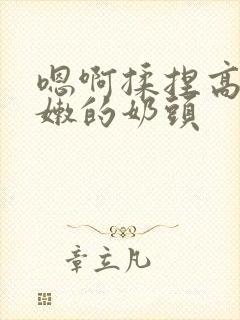 嗯啊揉捏高
嫩的奶頭
章立凡